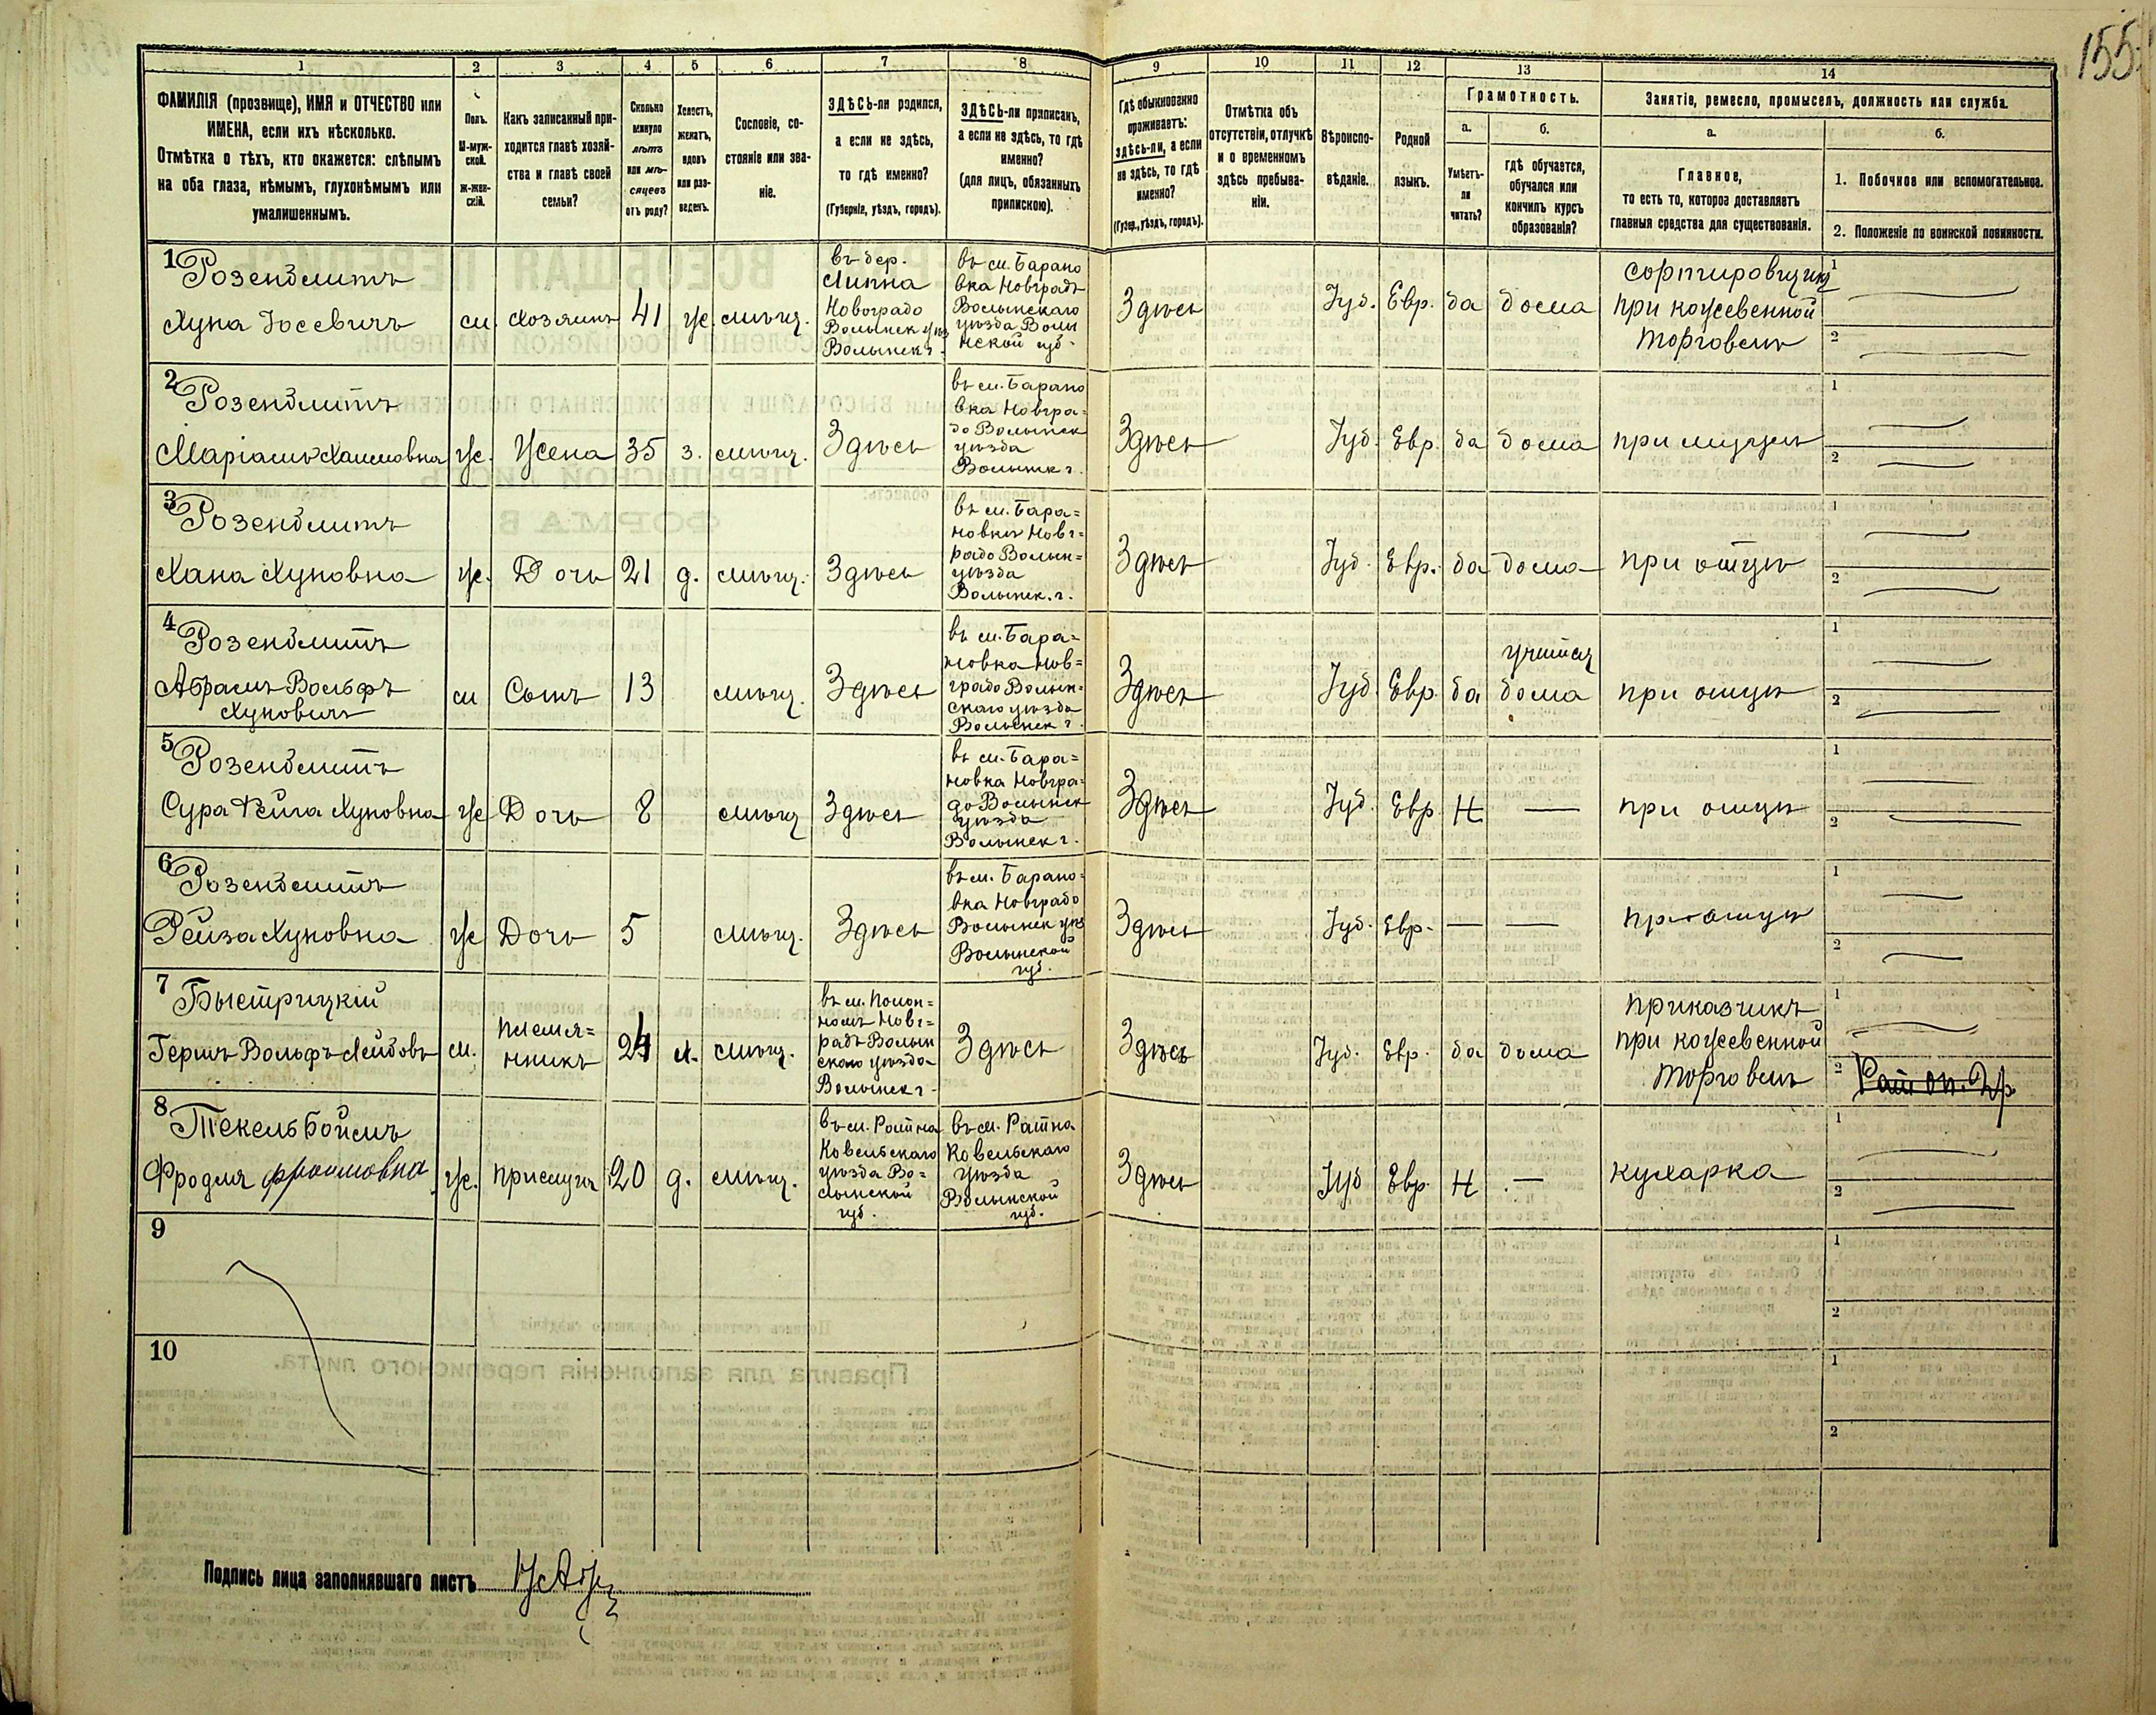 155
1 2 3 4 5 6 7 8 9 10 11 12 13 14
ФАМИЛІЯ (прозвище), ИМЯ и ОТЧЕСТВО или
ИМЕНА, если ихъ нѣсколько.
Отмѣтка о тѣхъ, кто окажется: слѣпымъ
на оба глаза, нѣмымъ, глухонѣмымъ или
умалишеннымъ.
Полъ.
М-муж-
ской.
Ж-жен-
скій.
Какъ записанный при-
ходится главѣ хозяй-
ства и главѣ своей
семьи?
Сколько
минуло
лѣтъ
или мѣ-
сяцевъ
отъ роду?
Холостъ,
женатъ,
вдовъ
или раз-
веденъ.
Сословіе, со-
стояніе или зва-
ніе.
ЗДѢСЬ-ли родился,
а если не здѣсь,
то гдѣ именно?
(Губернія, уѣздъ, городъ).
ЗДѢСЬ-ли приписанъ,
а если не здѣсь, то гдѣ
именно?
(для лицъ, обязанныхъ
припискою).
Гдѣ обыкновенно
проживаетъ:
здѣсь-ли, а если
не здѣсь, то гдѣ
именно?
(Губер., уѣздъ, городъ).
Отмѣтка объ
отсутствіи, отлучкѣ
и о временномъ
здѣсь пребыва-
ніи.
Вѣроиспо-
вѣданіе.
Родной
языкъ.
Грамотность.
а.
Умѣетъ-
ли
читать?
б.
гдѣ обучается,
обучался или
кончилъ курсъ
образованія?
Занятіе, ремесло, промыселъ, должность или служба.
а.
Главное,
то есть то, которое доставляетъ
главныя средства для существованія.
б.
1. Побочное или вспомогательное.
2. Положеніе по воинской повинности.
1
Розенблитъ
Хуна Іосевичъ
м. хозяинъ 41 ж. мѣщ.
въ дер.
Липна
Новоградо
Волынск уѣз
Волынск г.
въ м. Барано
вка Новградъ
Волынскаго
уѣзда Волы
нской губ.
Здѣсь
Іуд. Евр. да дома
сортировщикъ
при кожевенной
торговлѣ
1
2
2
Розенблитъ
Маріамъ Хаимовна
ж. Жена 35 з. мѣщ. Здѣсь
въ м. Барано
вка Новгра-
до Волынск
уѣзда
Волынск г.
Здѣсь Іуд. Евр. да дома при мужѣ
1
2
3
Розенблитъ
Хана Хуновна
ж. Дочь 21 д. мѣщ. Здѣсь
въ м. Бара=
новкѣ Новг=
радо Волын=
уѣзда
Волынск. г.
Здѣсь Іуд. Евр. да дома при отцѣ
1
2
4
Розенблитъ
Абрамъ Вольфъ
Хуновичъ
м Сынъ 13 мѣщ. Здѣсь
въ м. Бара=
новка Нов=
градо Волын-
скаго уѣзда
Волынск г.
Здѣсь Іуд. Евр. да
учится
дома
при отцѣ
1
2
5
Розенблитъ
Сура Фейга Хуновна
ж Дочь 8 мѣщ Здѣсь
въ м. Бара=
новка Новгра=
до Волынск
уѣзда
Волынск г.
Здѣсь Іуд. Евр Н — при отцѣ
1
2
6
Розенблитъ
Рейза Хуновна
ж Дочь 5 мѣщ. Здѣсь
въ м. Барано=
вка Новградо
Волынск уѣз
Волынской
губ.
Здѣсь Іуд. Евр. — — при отцѣ
1
2
7
Быстрицкій
Гершъ Вольфъ Лейбовъ
м.
племя=
нникъ
24 х. мѣщ.
въ м. Полон=
номъ Новг=
радъ Волын
скаго уѣзда
Волынск г.
Здѣсь
Здѣсь
Іуд. Евр. да дома
приказчикъ
при кожевенной
торговлѣ
1
2
8
Текельбоймъ
Фродля Фроимовна
ж. прислуга 20 д. мѣщ.
въ м. Ратна
Ковельскаго
уѣзда Во=
лынской
губ.
въ м. Ратна
Ковельскаго
уѣзда
Волынской
губ.
Здѣсь Іуд Евр. Н — кухарка
1
2
9
1
2
10
1
2
Подпись лица заполнявшаго листъ